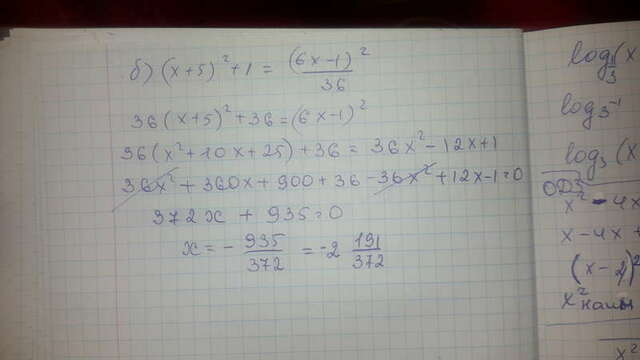 б) (x+5)² + 1 = (6x-1)²/36
36(x+5)² + 36 = (6x-1)²
36(x²+10x+25)+36 = 36x²-12x+1
36x² + 360x + 900 + 36 - 36x² + 12x - 1 = 0
372x + 935 = 0
x = - 935/372 = -2 191/372
log₁/₃(x
log3⁻¹
log₃(x
ОДЗ
x² - 4x
x - 4x +
(x-2)²
x² наим
x²